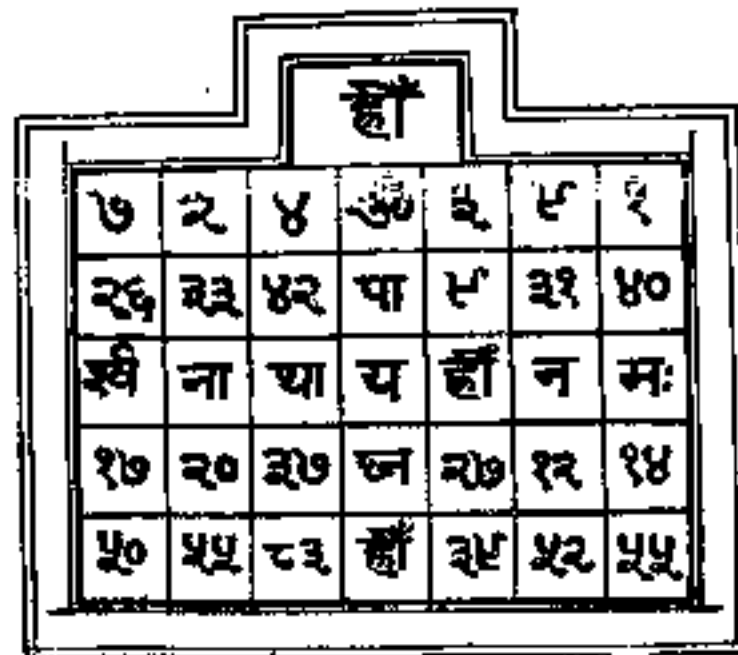 ह्रीं
७ २ ४ ॐ ३ ९ २
२६ ३३ ४२ पा ९ ३१ ४०
र्श्व ना था य ह्रीं न मः
१७ २० ३७ २७ १२ १४
५० ५५ ८३ ह्रीं ३९ ५२ ५५